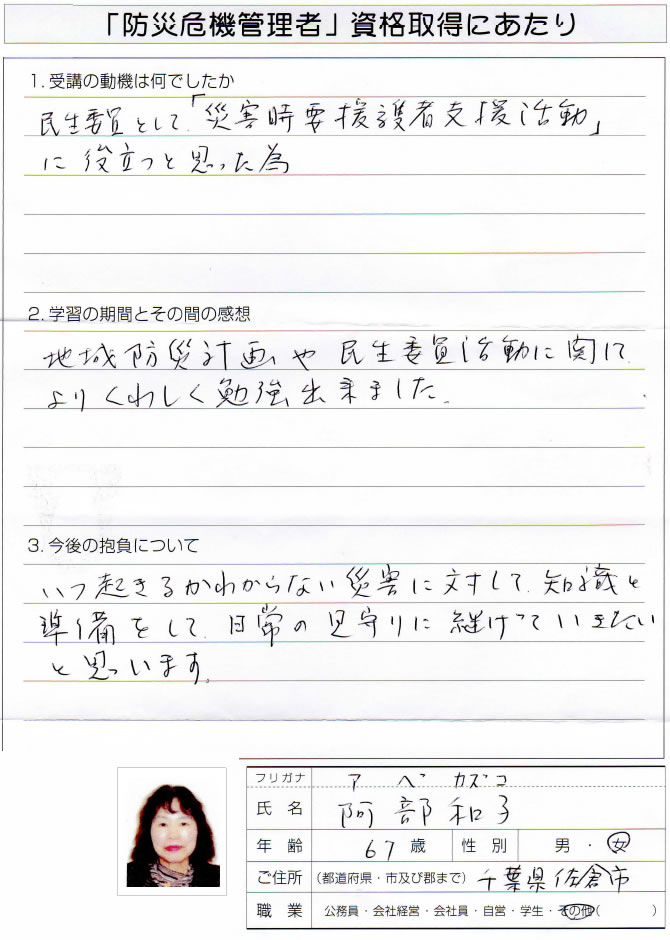 「防災危機管理者」資格取得にあたり
1. 受講の動機は何でしたか
民生委員として、「災害時要援護者支援活動」
に役立つと思った為
2. 学習の期間とその間の感想
地域防災計画や民生委員活動に関して、
よりくわしく勉強出来ました。
3. 今後の抱負について
いつ起きるかわからない災害に対して、知識と
準備をして、日常の見守りに継げていきたい
と思います。
フリガナ アベ カズコ
氏名 阿部和子
年齢 67歳 性別 男・女
ご住所 (都道府県・市及び郡まで) 千葉県佐倉市
職業 公務員・会社経営・会社員・自営・学生・その他( )